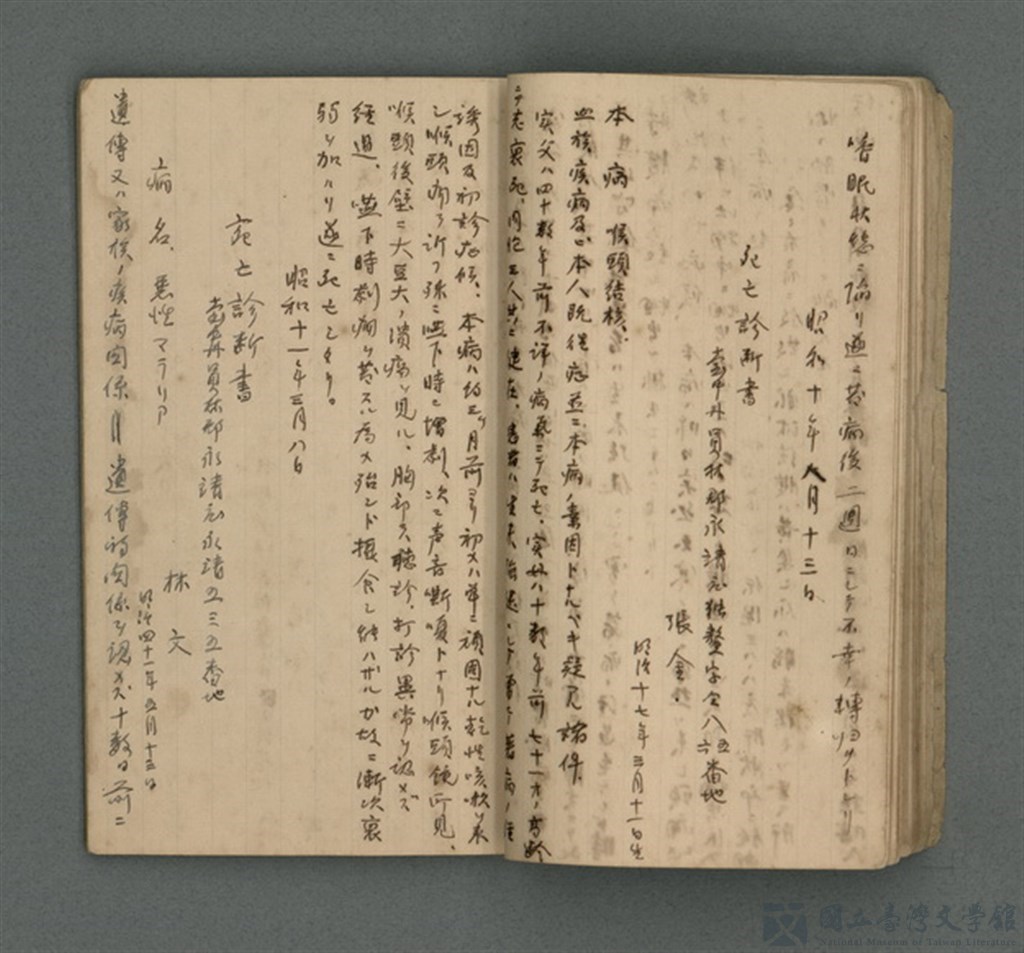 嗜眠状態ニ陥リ遂ニ発病後二週日ニシテ不幸ノ轉
昭和十年八月十三日
死亡診断書
員林郡永靖庄 八 番地
張金
明治十七年三月十一日生
本病 喉頭結核、
血族疾病及ビ本人既往症並ニ本病ノ素因トナルベキ疑アル諸件、
実父ハ四十数年前不詳ノ病気ニテ死亡、実母ハ十数年前七十一才ノ高齢
ニテ老衰死、同胞三人共ニ健在、患者ハ生来
誘因及初診症候、本病ハ約三ヶ月前ヨリ初メハ単ニ頑固ナル乾性咳嗽ヲ来
シ喉頭痛ヲ訴フ殊ニ嚥下時ニ増劇、次デ声音嘶嗄トナリ喉頭鏡所見、
喉頭後壁ニ大豆大ノ潰瘍ヲ見ル、胸部ハ聴診、打診異常ヲ認メズ
経過、嚥下時劇痛ヲ発スル為メ殆ンド摂食シ能ハザルガ故ニ漸次衰
弱ヲ加ハリ遂ニ死亡セリ。
昭和十一年三月八日
死亡診断書
員林郡永靖庄永靖五三五番地
林文
明治四十一年五月十五日
一病名、悪性マラリア
遺傳又ハ家族ノ疾病関係 遺傳的関係ヲ認メズ十数日前ニ
國立臺灣文學館
National Museum of Taiwan Literature